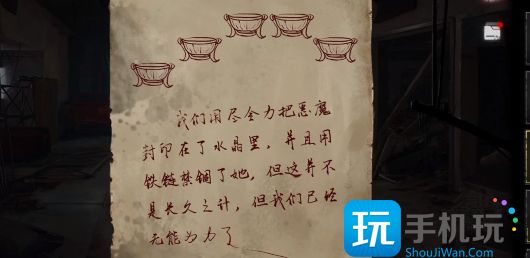 我们用尽全力把恶魔
封印在了水晶里，并且用
铁链禁锢了她，但这并不
是长久之计，但我们已经
无能为力了
玩 手机玩
ShouJiWan.Com